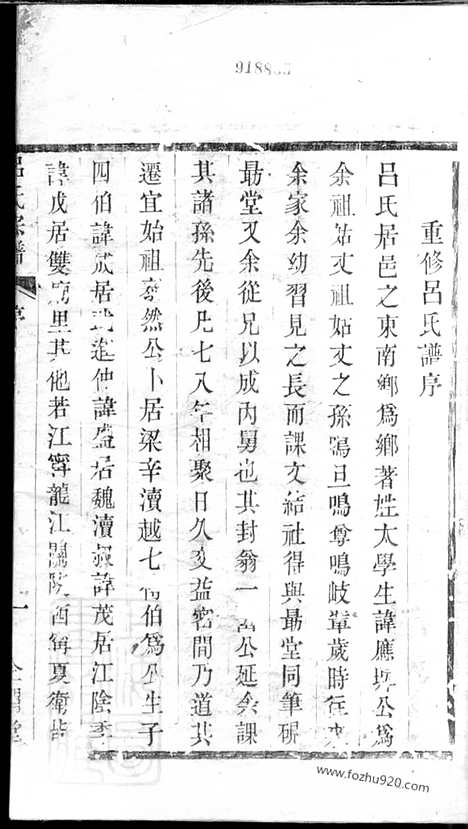 918885
重修呂氏譜序
呂氏居邑之東南鄉爲鄉著姓太學生諱應兵公爲
余祖姑丈祖姑丈之孫鳴旦鳴尊鳴岐輩歲時往來
余家余幼習見之長而課文結社得與最堂同筆硏
最堂又余從兄以成內舅也其封翁一公延余課
其諸孫先後凡七八年相聚日久交益密間乃道其
遷宜始祖泰然公卜居梁辛瀆越七伯爲公生子
四伯諱成居仲諱盛居魏瀆叔諱茂居江陰季
諱戊居雙廟里其他若江寧龍江關陝西甯夏衛皆
呂氏宗譜
序
一